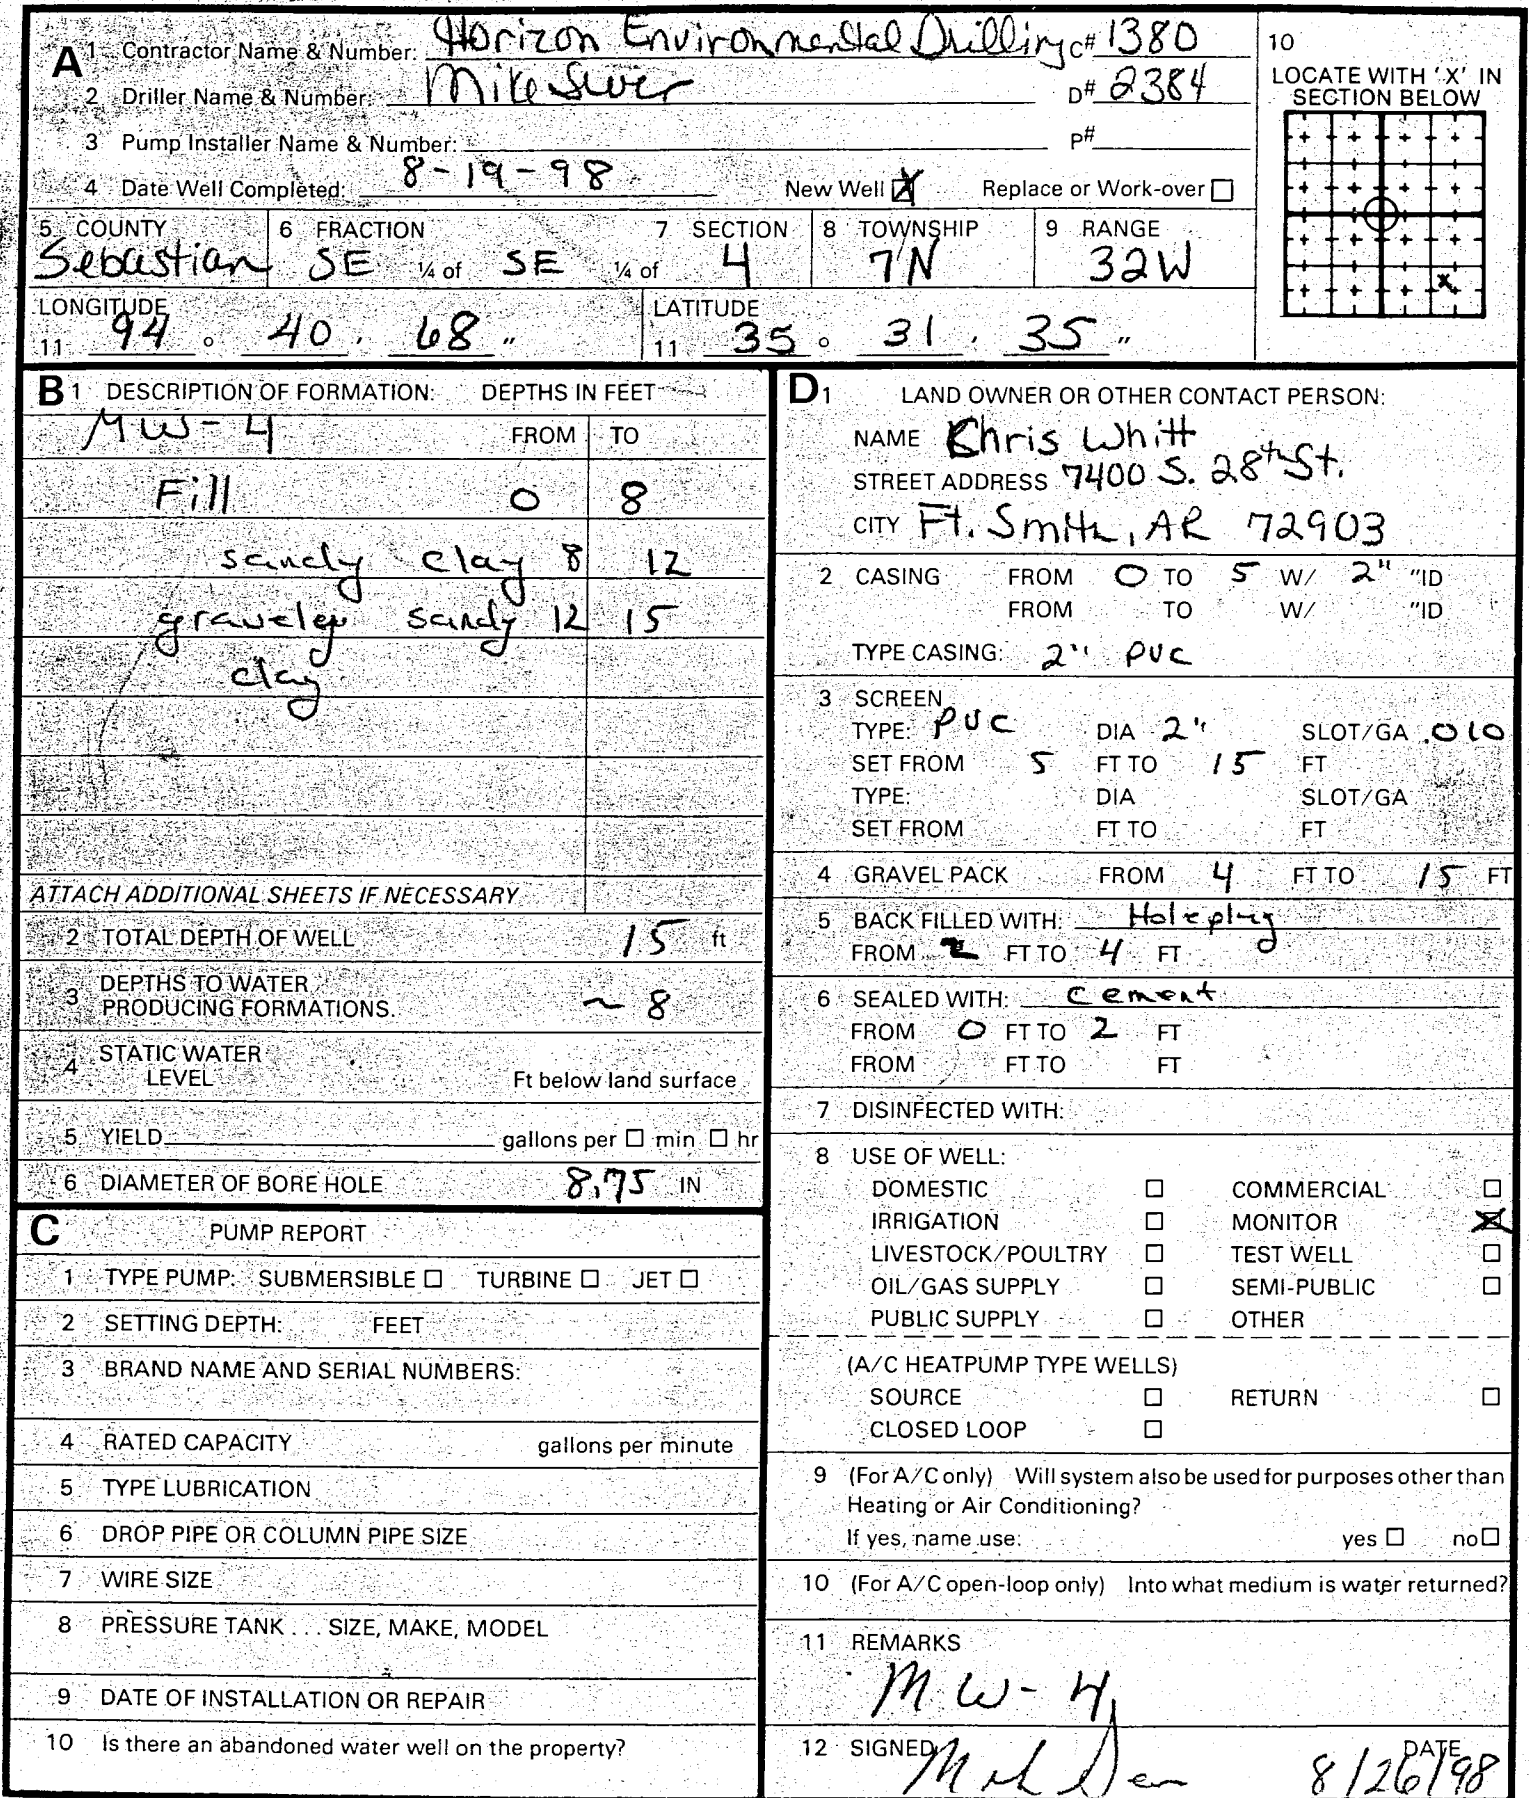 A 1 Contractor Name & Number: Horizon Environmental Drilling C# 1380
2 Driller Name & Number: Mike D# 2384
3 Pump Installer Name & Number: P#
4 Date Well Completed: 8-19-98 New Well ☒ Replace or Work-over ☐
10
LOCATE WITH 'X' IN
SECTION BELOW
X
5 COUNTY 6 FRACTION 7 SECTION 8 TOWNSHIP 9 RANGE
Sebastian SE ¼ of SE ¼ of 4 7N 32W
LONGITUDE LATITUDE
11 94 ° 40 ' 68 " 11 35 ° 31 ' 35 "
B 1 DESCRIPTION OF FORMATION: DEPTHS IN FEET
MW-4 FROM TO
Fill 0 8
sandy clay 8 12
graveley sandy 12 15
clay
ATTACH ADDITIONAL SHEETS IF NECESSARY
2 TOTAL DEPTH OF WELL 15 ft
3 DEPTHS TO WATER
PRODUCING FORMATIONS. ~ 8
4 STATIC WATER
LEVEL Ft below land surface
5 YIELD gallons per ☐ min ☐ hr
6 DIAMETER OF BORE HOLE 8.75 IN
C PUMP REPORT
1 TYPE PUMP: SUBMERSIBLE ☐ TURBINE ☐ JET ☐
2 SETTING DEPTH: FEET
3 BRAND NAME AND SERIAL NUMBERS:
4 RATED CAPACITY gallons per minute
5 TYPE LUBRICATION
6 DROP PIPE OR COLUMN PIPE SIZE
7 WIRE SIZE
8 PRESSURE TANK . . . SIZE, MAKE, MODEL
9 DATE OF INSTALLATION OR REPAIR
10 Is there an abandoned water well on the property?
D 1 LAND OWNER OR OTHER CONTACT PERSON:
NAME Khris Whitt
STREET ADDRESS 7400 S. 28th St.
CITY Ft. Smith, AR 72903
2 CASING FROM 0 TO 5 W/ 2" "ID
FROM TO W/ "ID
TYPE CASING: 2" PVC
3 SCREEN
TYPE: PVC DIA 2" SLOT/GA .010
SET FROM 5 FT TO 15 FT
TYPE: DIA SLOT/GA
SET FROM FT TO FT
4 GRAVEL PACK FROM 4 FT TO 15 FT
5 BACK FILLED WITH: Holeplug
FROM 2 FT TO 4 FT
6 SEALED WITH: cement
FROM 0 FT TO 2 FT
FROM FT TO FT
7 DISINFECTED WITH:
8 USE OF WELL:
DOMESTIC ☐ COMMERCIAL ☐
IRRIGATION ☐ MONITOR ☒
LIVESTOCK/POULTRY ☐ TEST WELL ☐
OIL/GAS SUPPLY ☐ SEMI-PUBLIC ☐
PUBLIC SUPPLY ☐ OTHER
(A/C HEATPUMP TYPE WELLS)
SOURCE ☐ RETURN ☐
CLOSED LOOP ☐
9 (For A/C only) Will system also be used for purposes other than
Heating or Air Conditioning?
If yes, name use: yes ☐ no ☐
10 (For A/C open-loop only) Into what medium is water returned?
11 REMARKS
MW-4
12 SIGNED DATE
8/26/98